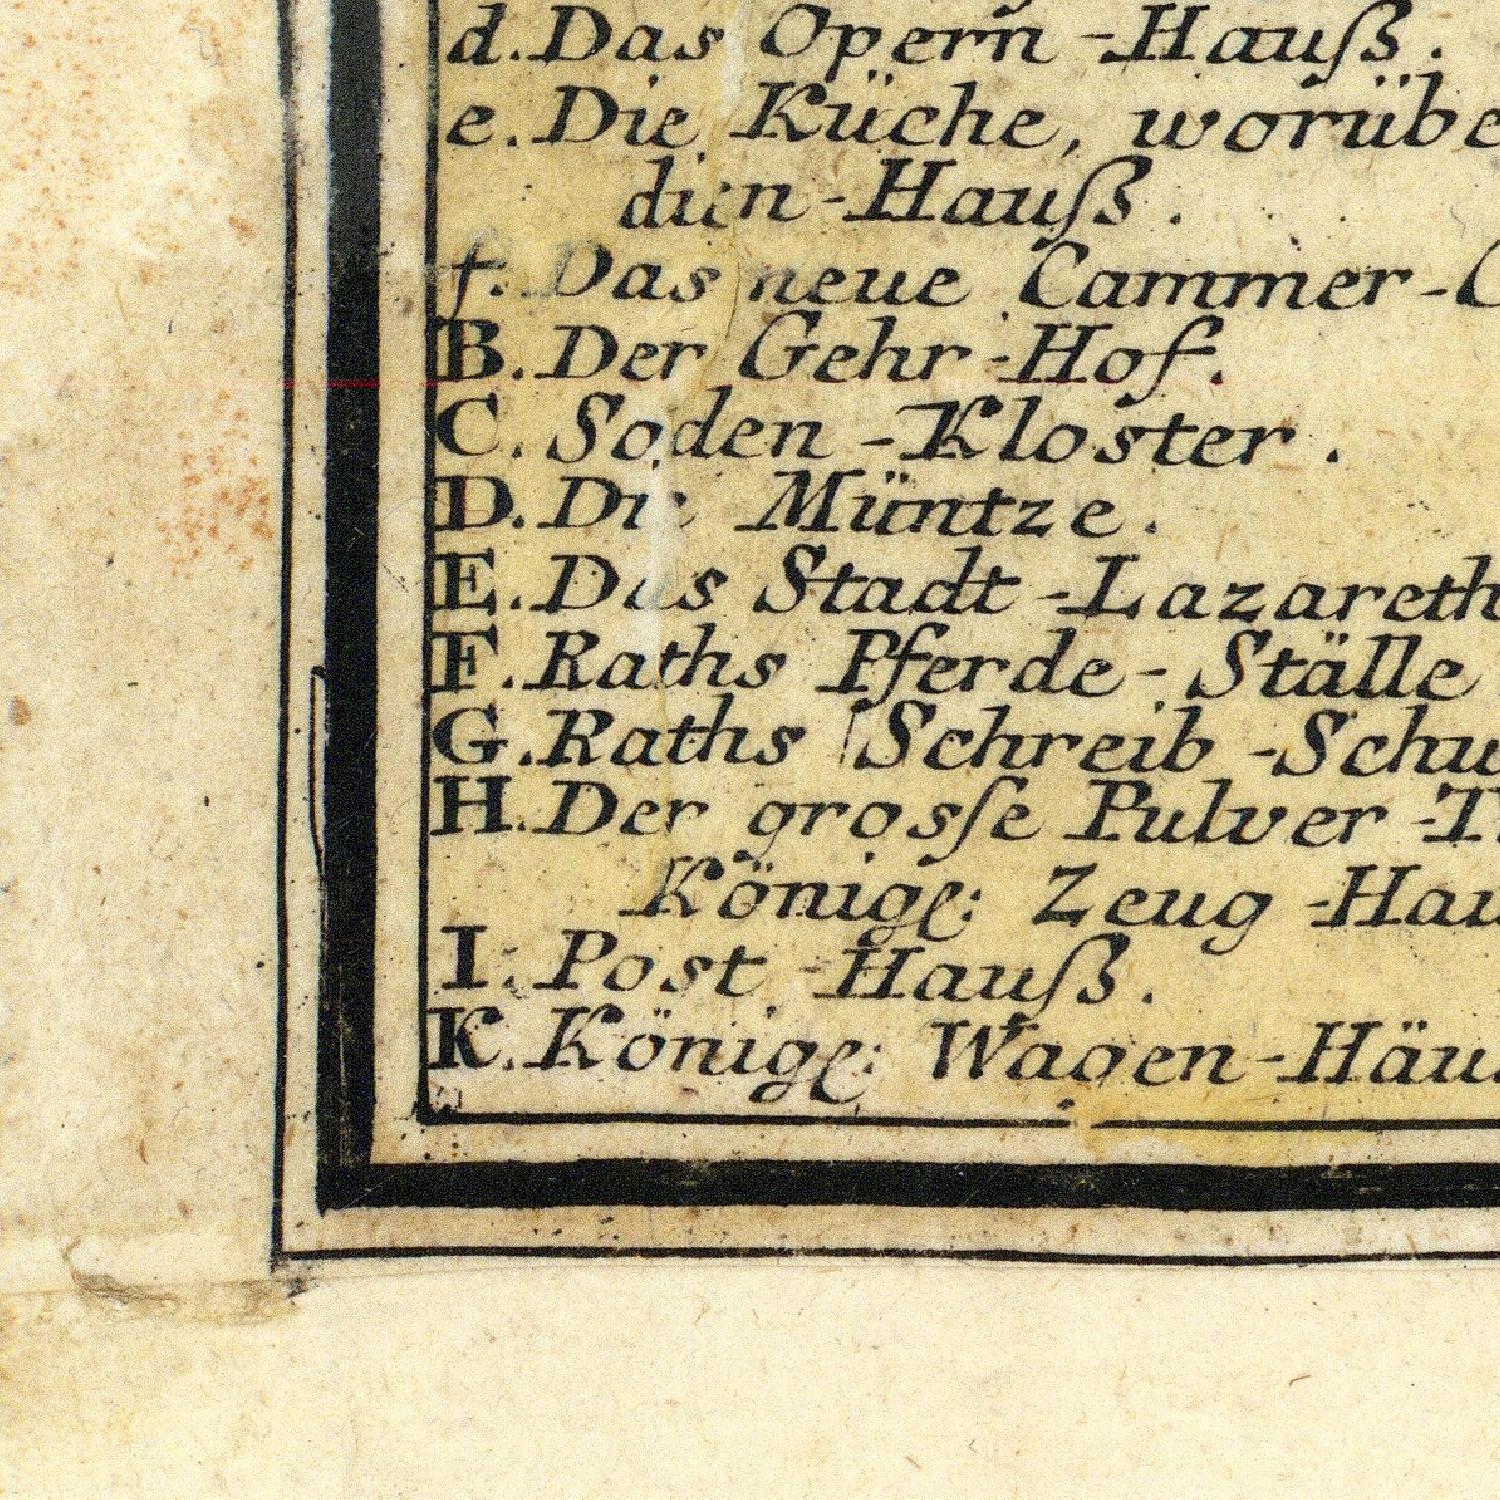 d. Das Opern-Hauß.
e. Die Küche, worübe
dien-Hauß.
f. Das neue Cammer-C
B. Der Gehr-Hof.
C. Soden-Kloster.
D. Die Müntze.
E. Das Stadt-Lazareth
F. Raths Pferde-Ställe
G. Raths Schreib-Schu
H. Der grosſe Pulver-T
Königl: Zeug-Hau
I. Post-Hauß.
K. Königl: Wagen-Häu